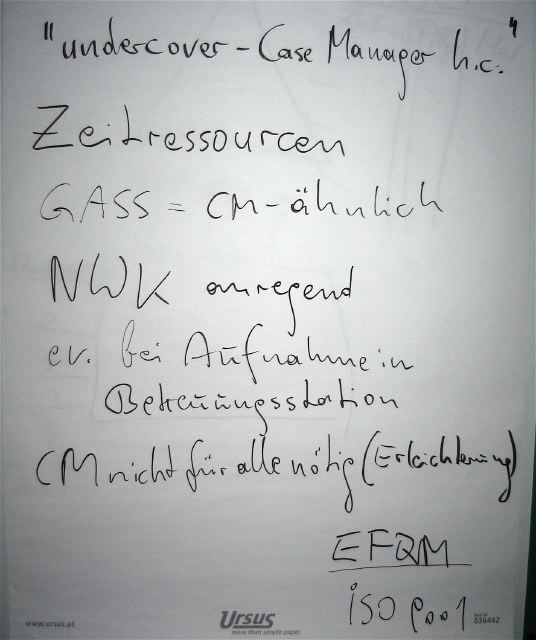 "undercover - Case Manager h.c."
Zeitressourcen
GASS = CM-ähnlich
NWK anregend
ev. bei Aufnahme in
Betreuungsstation
CM nicht für alle nötig (Erleichterung)
EFQM
ISO 9001
www.ursus.at
Ursus
more than simple paper
036442